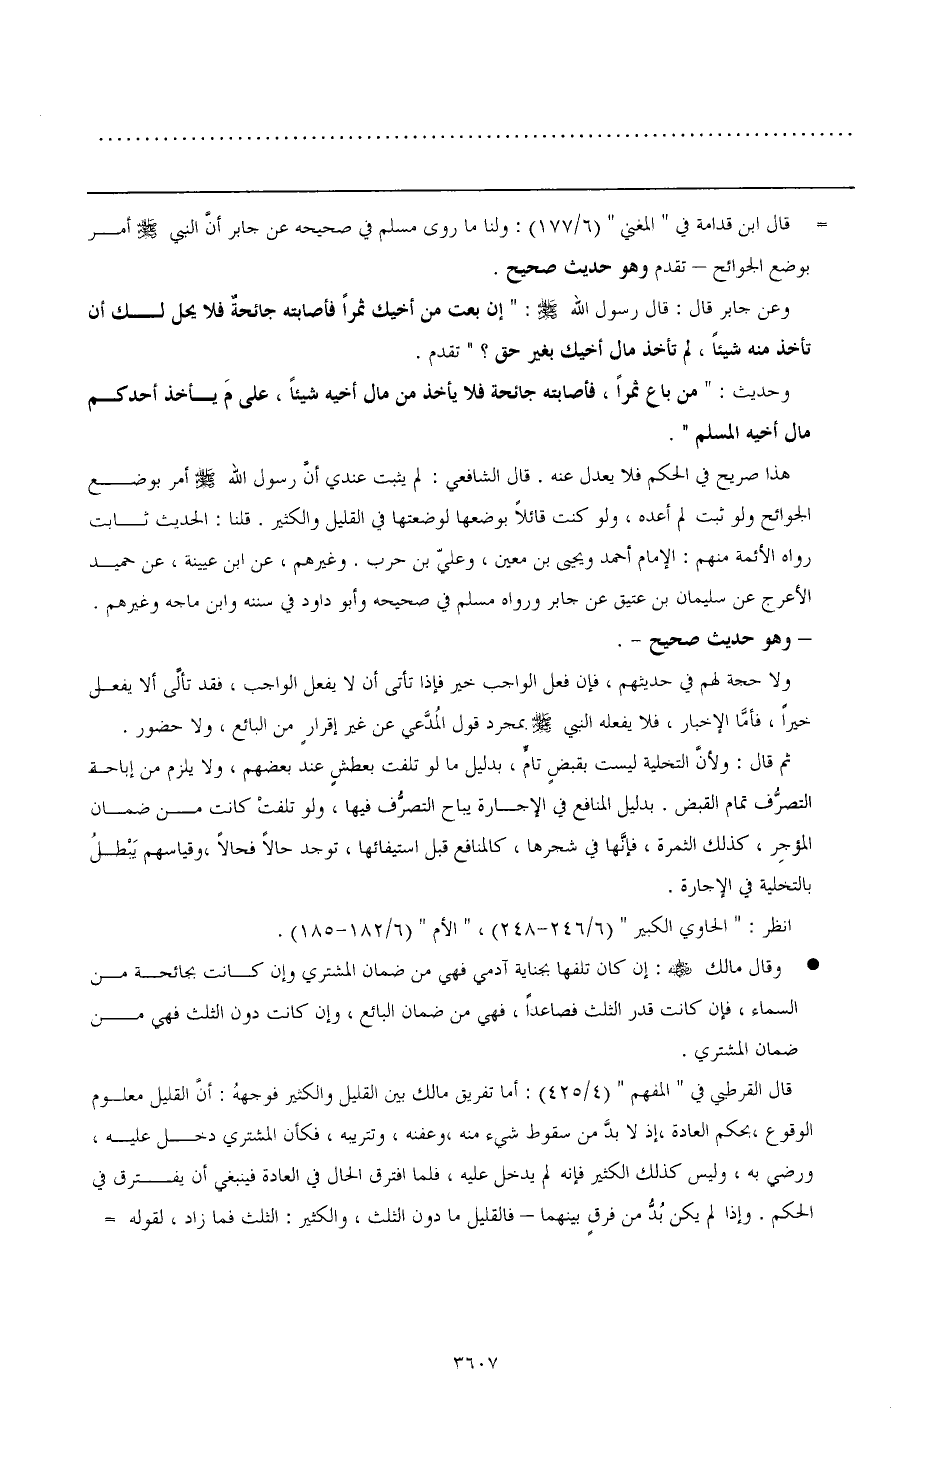 = قال ابن قدامة في " المغني " (٦/١٧٧) : ولنا ما روى مسلم في صحيحه عن جابر أنَّ النبي ﷺ أمر
بوضع الجوائح – تقدم وهو حديث صحيح .
وعن جابر قال : قال رسول الله ﷺ : " إن بعت من أخيك ثمراً فأصابته جائحةٌ فلا يحل لك أن
تأخذ منه شيئاً ، لم تأخذ مال أخيك بغير حق ؟ " تقدم .
وحديث : " من باع ثمراً ، فأصابته جائحة فلا يأخذ من مال أخيه شيئاً ، على مَ يأخذ أحدكم
مال أخيه المسلم " .
هذا صريح في الحكم فلا يعدل عنه . قال الشافعي : لم يثبت عندي أنَّ رسول الله ﷺ أمر بوضع
الجوائح ولو ثبت لم أعده ، ولو كنت قائلاً بوضعها لوضعتها في القليل والكثير . قلنا : الحديث ثابت
رواه الأئمة منهم : الإمام أحمد ويحيى بن معين ، وعليّ بن حرب . وغيرهم ، عن ابن عيينة ، عن حميد
الأعرج عن سليمان بن عتيق عن جابر ورواه مسلم في صحيحه وأبو داود في سننه وابن ماجه وغيرهم .
– وهو حديث صحيح - .
ولا حجة لهم في حديثهم ، فإن فعل الواجب خير فإذا تأتى أن لا يفعل الواجب ، فقد تألَّى ألا يفعل
خيراً ، فأمَّا الإخبار ، فلا يفعله النبي ﷺ بمجرد قول المُدَّعي عن غير إقرارٍ من البائع ، ولا حضور .
ثم قال : ولأنَّ التخلية ليست بقبضٍ تامٌّ ، بدليل ما لو تلفت بعطشٍ عند بعضهم ، ولا يلزم من إباحة
التصرُّف تمام القبض . بدليل المنافع في الإجارة يباح التصرُّف فيها ، ولو تلفتْ كانت من ضمان
المؤجرِ ، كذلك الثمرة ، فإنَّها في شجرها ، كالمنافع قبل استيفائها ، توجد حالاً فحالاً ،وقياسهم يَبْطلُ
بالتخلية في الإجارة .
انظر : " الحاوي الكبير " (٦/٢٤٦-٢٤٨) ، " الأم " (٦/١٨٢-١٨٥) .
● وقال مالك ﷺ : إن كان تلفها بجناية آدمي فهي من ضمان المشتري وإن كانت بجائحة من
السماء ، فإن كانت قدر الثلث فصاعداً ، فهي من ضمان البائع ، وإن كانت دون الثلث فهي من
ضمان المشتري .
قال القرطبي في " المفهم " (٤/٤٢٥) : أما تفريق مالك بين القليل والكثير فوجههُ : أنَّ القليل معلوم
الوقوع ،بحكم العادة ،إذ لا بدَّ من سقوط شيء منه ،وعفنه ، وتتريبه ، فكأن المشتري دخل عليه ،
ورضي به ، وليس كذلك الكثير فإنه لم يدخل عليه ، فلما افترق الحال في العادة فينبغي أن يفترق في
الحكم . وإذا لم يكن بُدُّ من فرقٍ بينهما – فالقليل ما دون الثلث ، والكثير : الثلث فما زاد ، لقوله =
٣٦٠٧